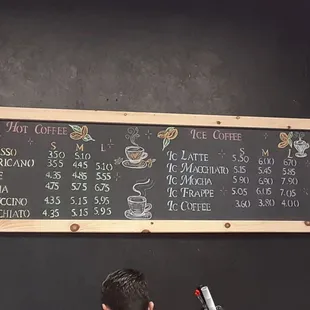 Hot Coffee
S M L
SSO 3.50 5.10
RICANO 3.55 4.45 5.10
E 4.35 4.85 5.55
HA 4.75 5.75 6.75
UCCINO 4.35 5.15 5.95
CHIATO 4.35 5.15 5.95
Ice Coffee
S M L
Ic Latte 5.30 6.00 6.70
Ic Macchiato 5.15 5.45 5.85
Ic Mocha 5.90 6.90 7.90
Ic Frappe 5.05 6.05 7.05
Ic Coffee 3.60 3.80 4.00